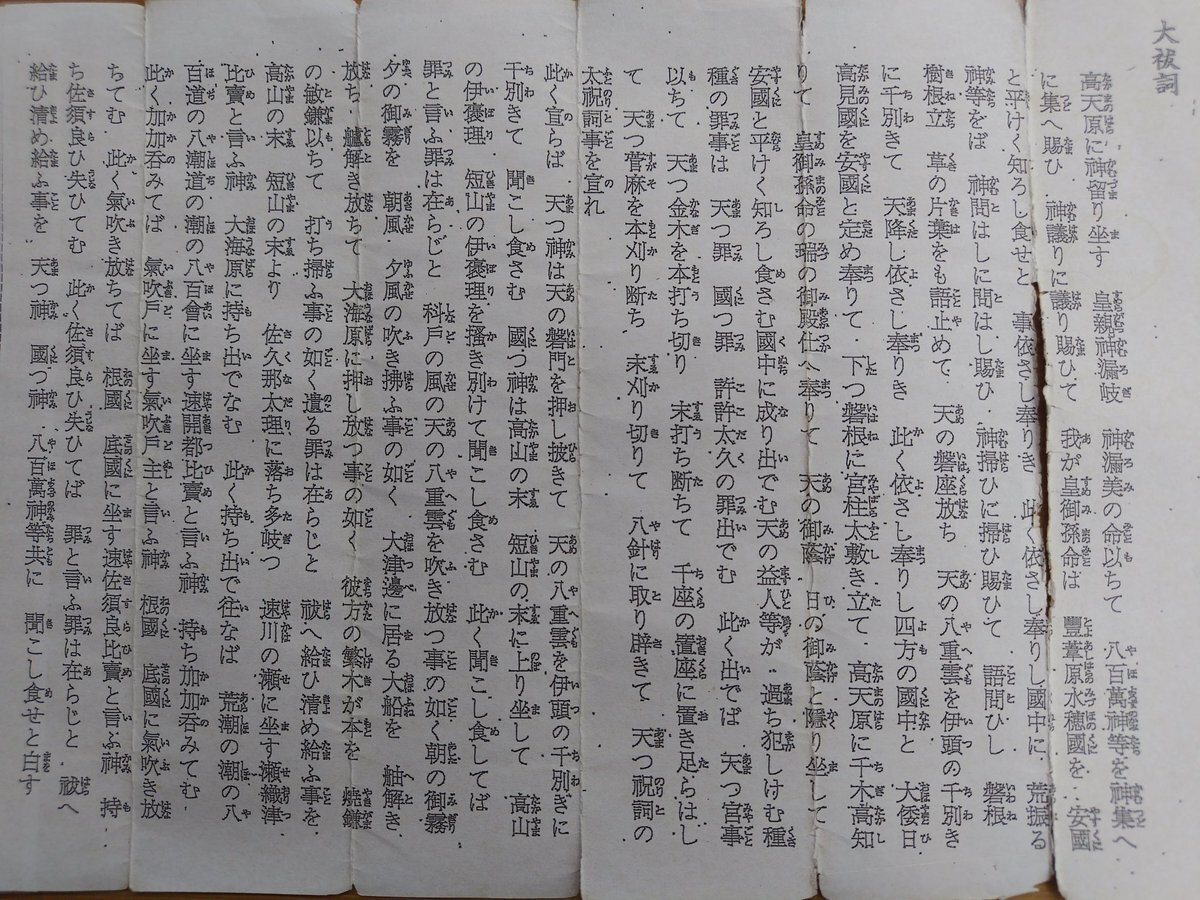 大祓詞
高天原に神留り坐す 皇親神漏岐 神漏美の命以ちて 八百萬神等を神集へ
に集へ賜ひ 神議りに議り賜ひて 我が皇御孫命は 豐葦原水穗國を 安國
と平けく知ろし食せと 事依さし奉りき 此く依さし奉りし國中に 荒振る
神等をば 神問はしに問はし賜ひ 神掃ひに掃ひ賜ひて 語問ひし 磐根
樹根立 草の片葉をも語止めて 天の磐座放ち 天の八重雲を伊頭の千別き
に千別きて 天降し依さし奉りき 此く依さし奉りし四方の國中と 大倭日
高見國を安國と定め奉りて 下つ磐根に宮柱太敷き立て 高天原に千木高知
りて 皇御孫命の瑞の御殿仕へ奉りて 天の御蔭 日の御蔭と隱り坐して
安國と平けく知ろし食さむ國中に成り出でむ天の益人等が 過ち犯しけむ種
種の罪事は 天つ罪 國つ罪 許許太久の罪出でむ 此く出でば 天つ宮事
以ちて 天つ金木を本打ち切り 末打ち断ちて 千座の置座に置き足らはし
て 天つ菅麻を本刈り断ち 末刈り切りて 八針に取り辟きて 天つ祝詞の
太祝詞事を宣れ
此く宣らば 天つ神は天の磐門を押し披きて 天の八重雲を伊頭の千別きに
千別きて 聞こし食さむ 國つ神は高山の末 短山の末に上り坐して 高山
の伊褒理 短山の伊褒理を搔き別けて聞こし食さむ 此く聞こし食してば
罪と言ふ罪は在らじと 科戸の風の天の八重雲を吹き放つ事の如く 朝の御霧
夕の御霧を 朝風 夕風の吹き拂ふ事の如く 大津邊に居る大船を 舳解き
放ち 艫解き放ちて 大海原に押し放つ事の如く 彼方の繁木が本を 燒鎌
の敏鎌以ちて 打ち掃ふ事の如く 遺る罪は在らじと 祓へ給ひ清め給ふ事を
高山の末 短山の末より 佐久那太理に落ち多岐つ 速川の瀨に坐す瀨織津
比賣と言ふ神 大海原に持ち出でなむ 此く持ち出で往なば 荒潮の潮の八
百道の八潮道の潮の八百會に坐す速開都比賣と言ふ神 持ち加加呑みてむ
此く加加呑みてば 氣吹戸に坐す氣吹戸主と言ふ神 根國 底國に氣吹き放
ちてむ 此く氣吹き放ちてば 根國 底國に坐す速佐須良比賣と言ふ神 持
ち佐須良ひ失ひてむ 此く佐須良ひ失ひてば 罪と言ふ罪は在らじと 祓へ
給ひ清め給ふ事を 天つ神 國つ神 八百萬神等共に 聞こし食せと白す